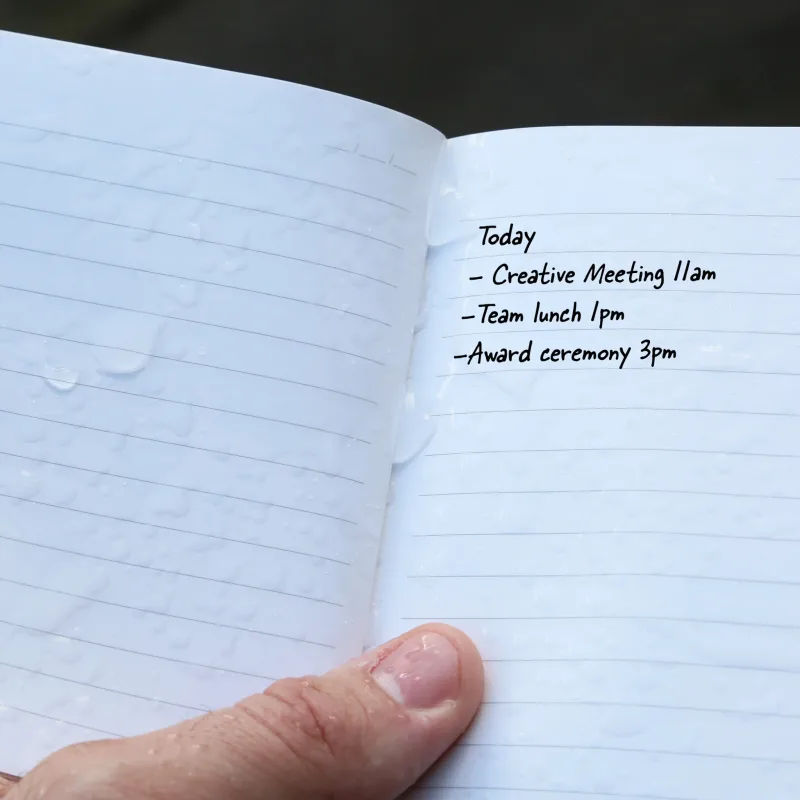 Today
- Creative Meeting 11am
-Team lunch 1pm
-Award ceremony 3pm